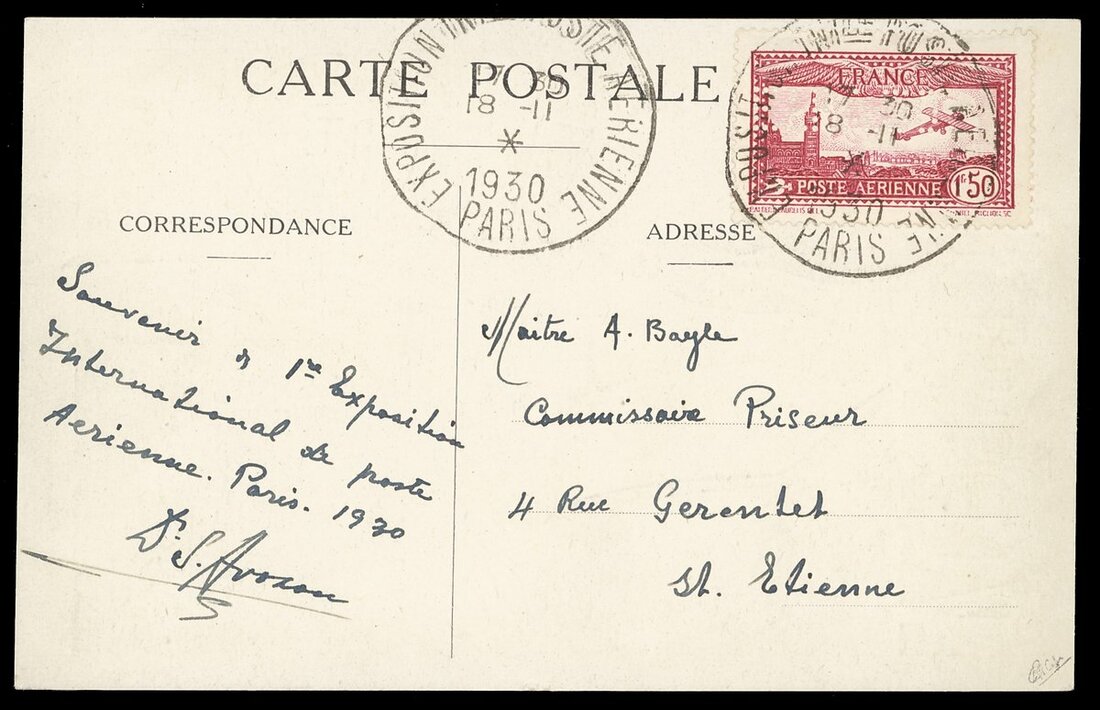 CARTE POSTALE
EXPOSITION INTLE POSTE AERIENNE
17 30
18 -11
*
1930
PARIS
FRANCE
POSTE AERIENNE 1F50
17 30
18 -11
*
1930
PARIS
CORRESPONDANCE
ADRESSE
Souvenir
1re Exposition
International de poste
Aerienne. Paris. 1930
Dr. S.
Maitre A. Bayle
Commissaire Priseur
4 Rue Gerentet
St. Etienne